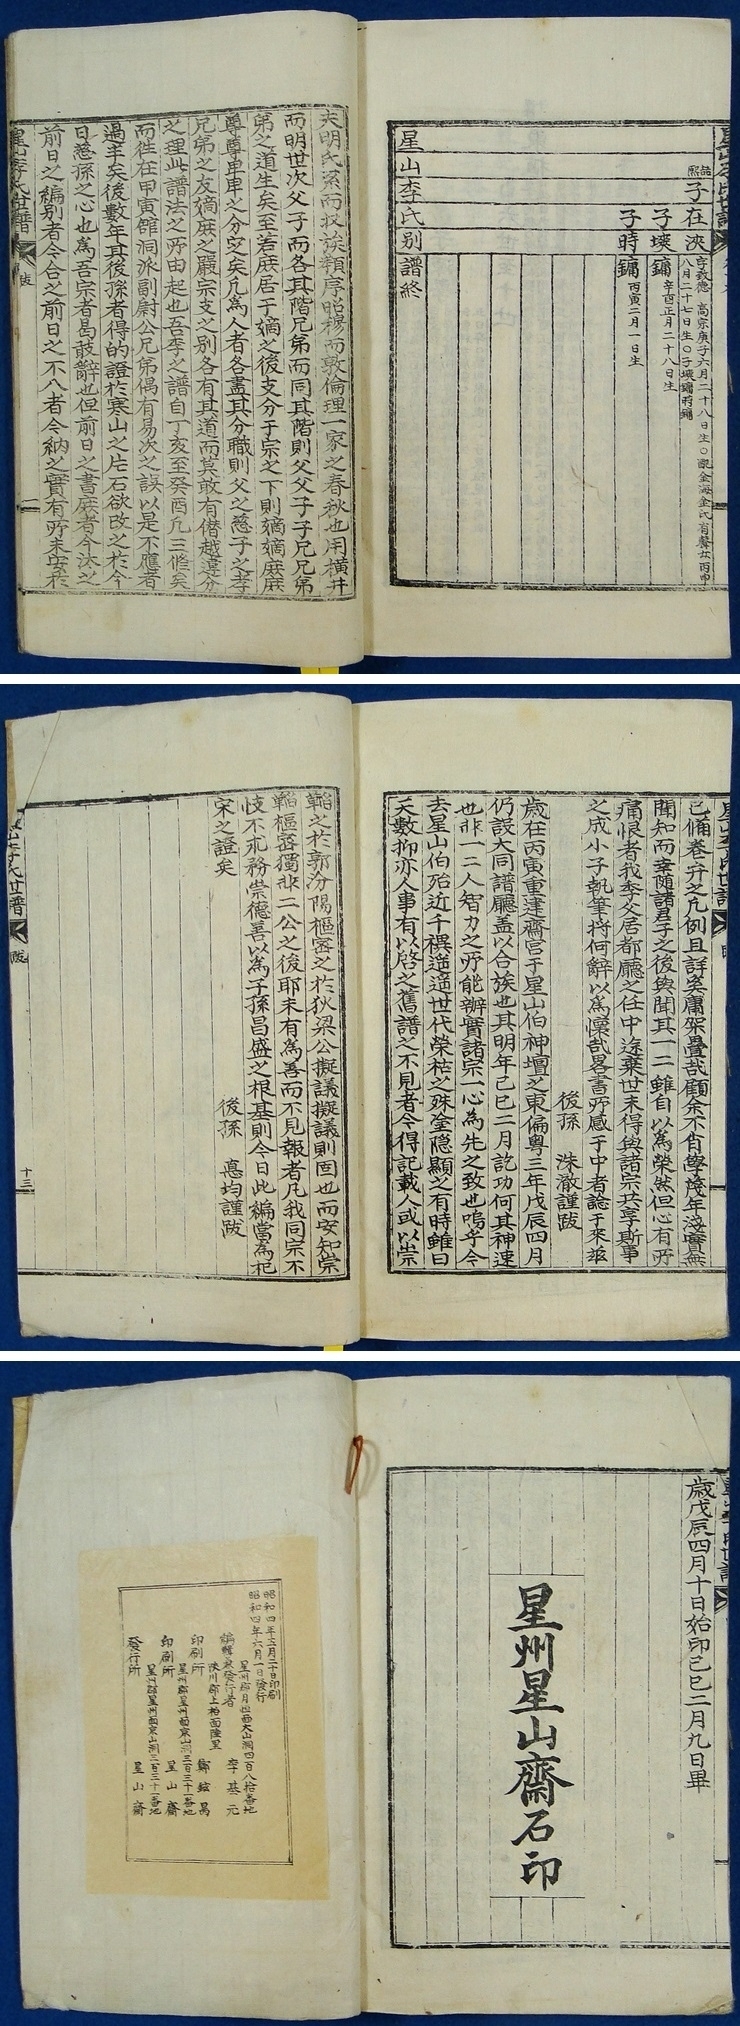 星山李氏世譜
子在浹
字敎德 高宗庚子六月二十八日生○配金海金氏有聲女丙申
八月二十七日生○子壎鏞時鏞
子壎鏞 辛酉正月二十八日生
子時鏞 丙寅二月一日生
星山李氏別譜終
夫明氏系而收族類序昭穆而敦倫理一家之春秋也用橫幷
而明世次父子而各其階兄弟而同其階則父父子子兄兄弟
弟之道生矣至若庶居于嫡之後支分于宗之下則嫡嫡庶庶
尊尊卑卑之分定矣凡爲人者各盡其分職則父之慈子之孝
兄弟之友嫡庶之嚴宗支之別各有其道而莫敢有僭越違分
之理此譜法之所由起也吾李之譜自丁亥至癸酉凡三修矣
而徃在甲寅館洞派副尉公兄弟偶有易次之誤以是不應者
過半矣後數年其後孫者得的證於寒山之片石欲改之於今
日慈孫之心也爲吾宗者曷敢辭也但前日之書庶者今汰之
前日之編別者今合之前日之不入者今納之實有所未安於
星山李氏世譜 跋 一
星山李氏世譜
已備卷弁之凡例且詳矣庸架疊哉顧余不肖學蔑年淺實無
聞知而幸隨諸君子之後與聞其一二雖自以爲榮然但心有所
痛恨者我季父居都廳之任中途棄世未得與諸宗共享斯事
之成小子執筆將何辭以爲懷哉畧書所感于中者諗于來玆
後孫 洙澈謹跋
歲在丙寅重建齋宮于星山伯神壇之東偏粤三年戊辰四月
仍設大同譜廳盖以合族也其明年己巳二月訖功何其神速
也非一二人智力之所能辦實諸宗一心爲先之致也嗚乎今
去星山伯殆近千禩遞遞世代榮枯之殊塗隱顯之有時雖曰
天數抑亦人事有以啓之舊譜之不見者今得記載人或以崇
韜之於郭汾陽樞密之於狄梁公擬議擬議則固也而安知崇
韜樞密獨非二公之後耶未有爲善而不見報者凡我同宗不
忮不求務崇德善以爲子孫昌盛之根基則今日此編當爲杞
宋之證矣
後孫 憙均謹跋
山李氏世譜 跋 十三
歲戊辰四月十日始印己巳二月九日畢
星州星山齋石印
昭和四年五月二十日印刷
昭和四年六月一日發行
星州郡月恒面大山洞四百八拾番地
編輯兼發行者 李基元
陜川郡上栢面陸里
印刷所 鄭鉉昌
星州郡星州面京山洞三百三十一番地
印刷所 星山齋
星州郡星州面京山洞三百三十一番地
發行所 星山齋